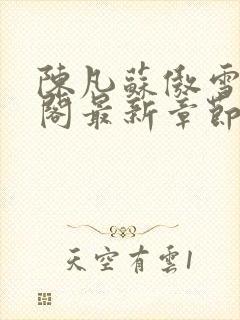 陳凡蘇傲雪
閣最新章節
天空有雲1